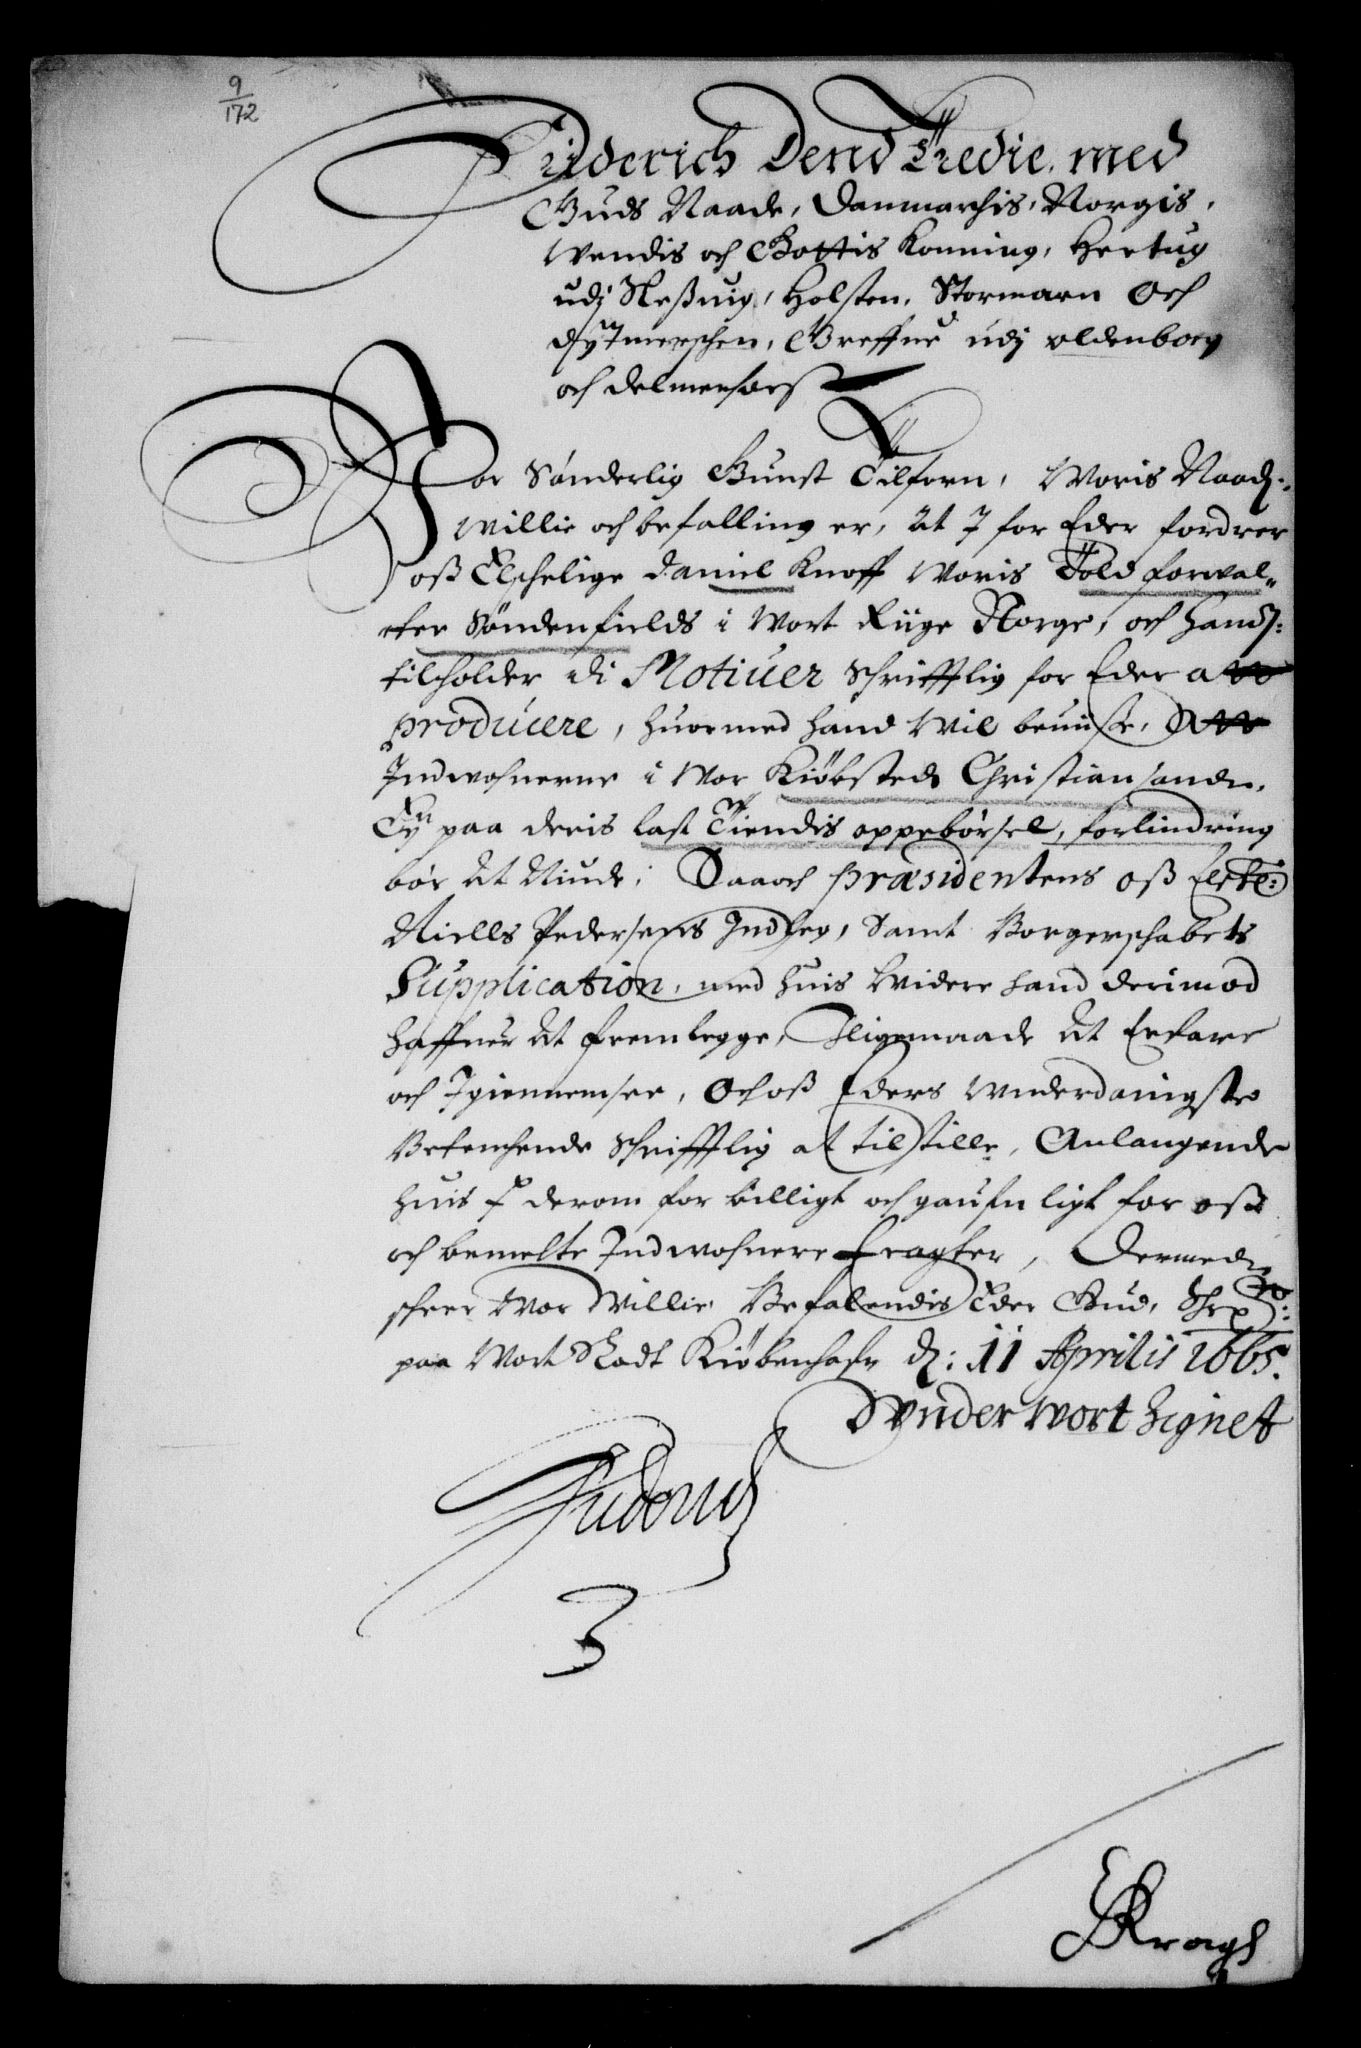 9
172
Friderich Dend Tredie, med
Guds Naade, Danmarchis, Norgis,
Wendis och Gottis Konning, Hertug
udj Slesuig, Holsten, Stormarn Och
Dytmerschen, Greffue udj Oldenborg
och Delmenhorst
Vor Sønderlig Gunst Tilforn, Woris Naad:
Willie och befalling er, at I for Eder fordrer
oß Elschelige Daniel Knoff Woris Told forwal„
ter Søndenfields i Wort Riige Norge, och hand:
tilholder di Motiuer Schrifftlig for Eder att
producere, huormed hand Wil beuiise, att
Indwohnerne i Wor Kiöbsteds Christiansands,
Ey paa deris last Tiendis oppebørsel, forlindring
bør at Niude; Saa och præsidentens oß Elske:
Niells Pedersens Indleg, Samt Borgerschabets
Supplication, med huis Widere hand derimod
haffuer at fremlegge, Sligemaade at Erfare
och Igiennemsee, Och oß Eders Wnderdanigste
Betenchende Schrifftlig at tilstille, Anlangende
huis I derom for billigt och gaufnligt for oß
och bemelte Indwohnere Eragter, Dermed
scheer Wor Willie, Befalendis Eder Gud, Schr:
paa Wort Slodt Kiøbenhafn d: 11 Aprilis 1665.
Wnder wort Zignet
Friderich
3
E Kragh